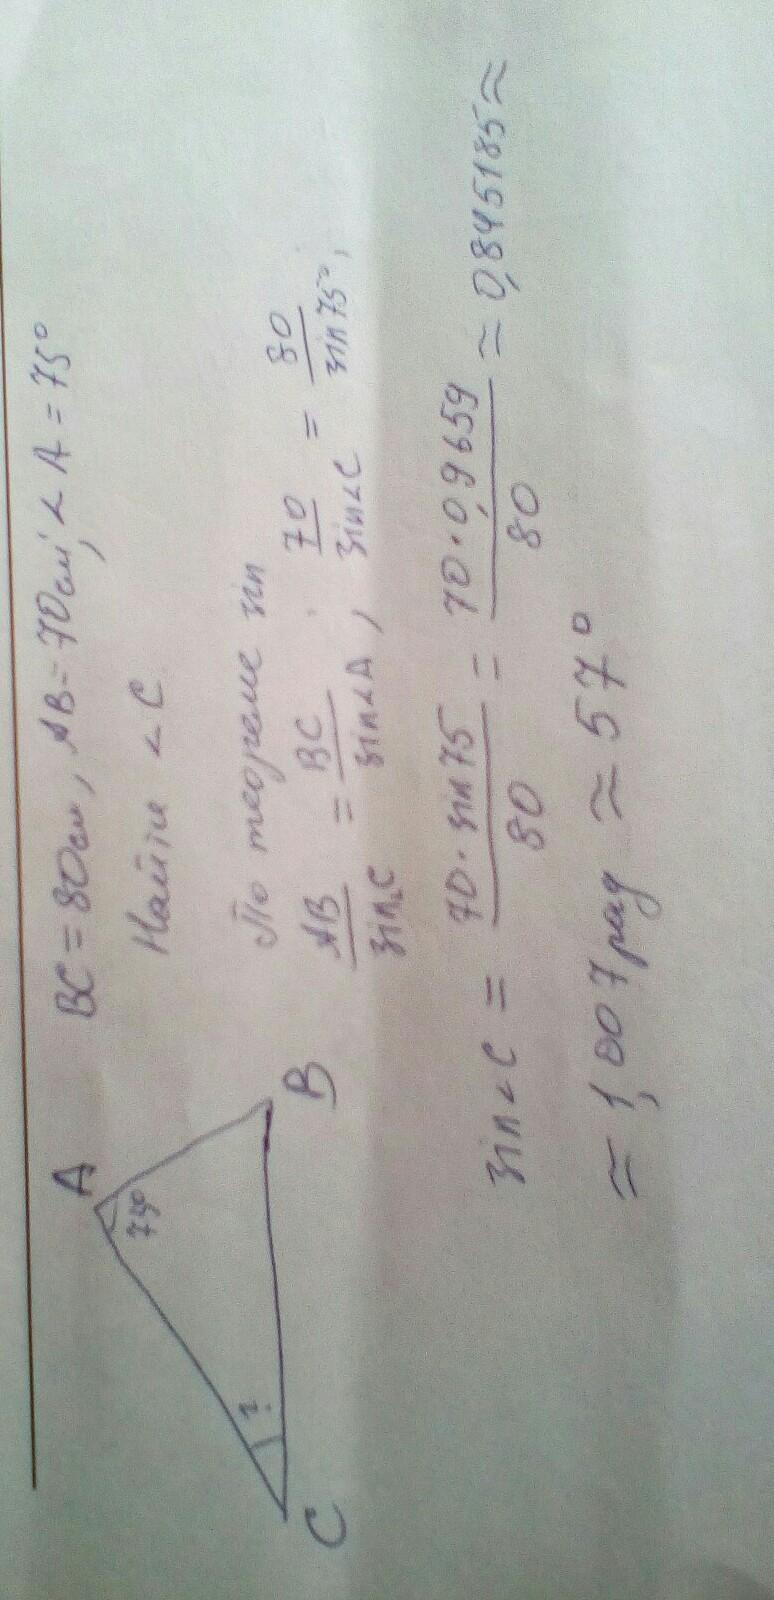 BC = 80см, AB = 70см, < A = 75°
Найти < C
По теореме sin
AB/sin<C = BC/sin<A, 70/sin<C = 80/sin75°,
sin<C = 70·sin75/80 = 70·0,9659/80 ≈ 0,845185 ≈
≈ 1,007рад ≈ 57°
A
75°
?
C
B